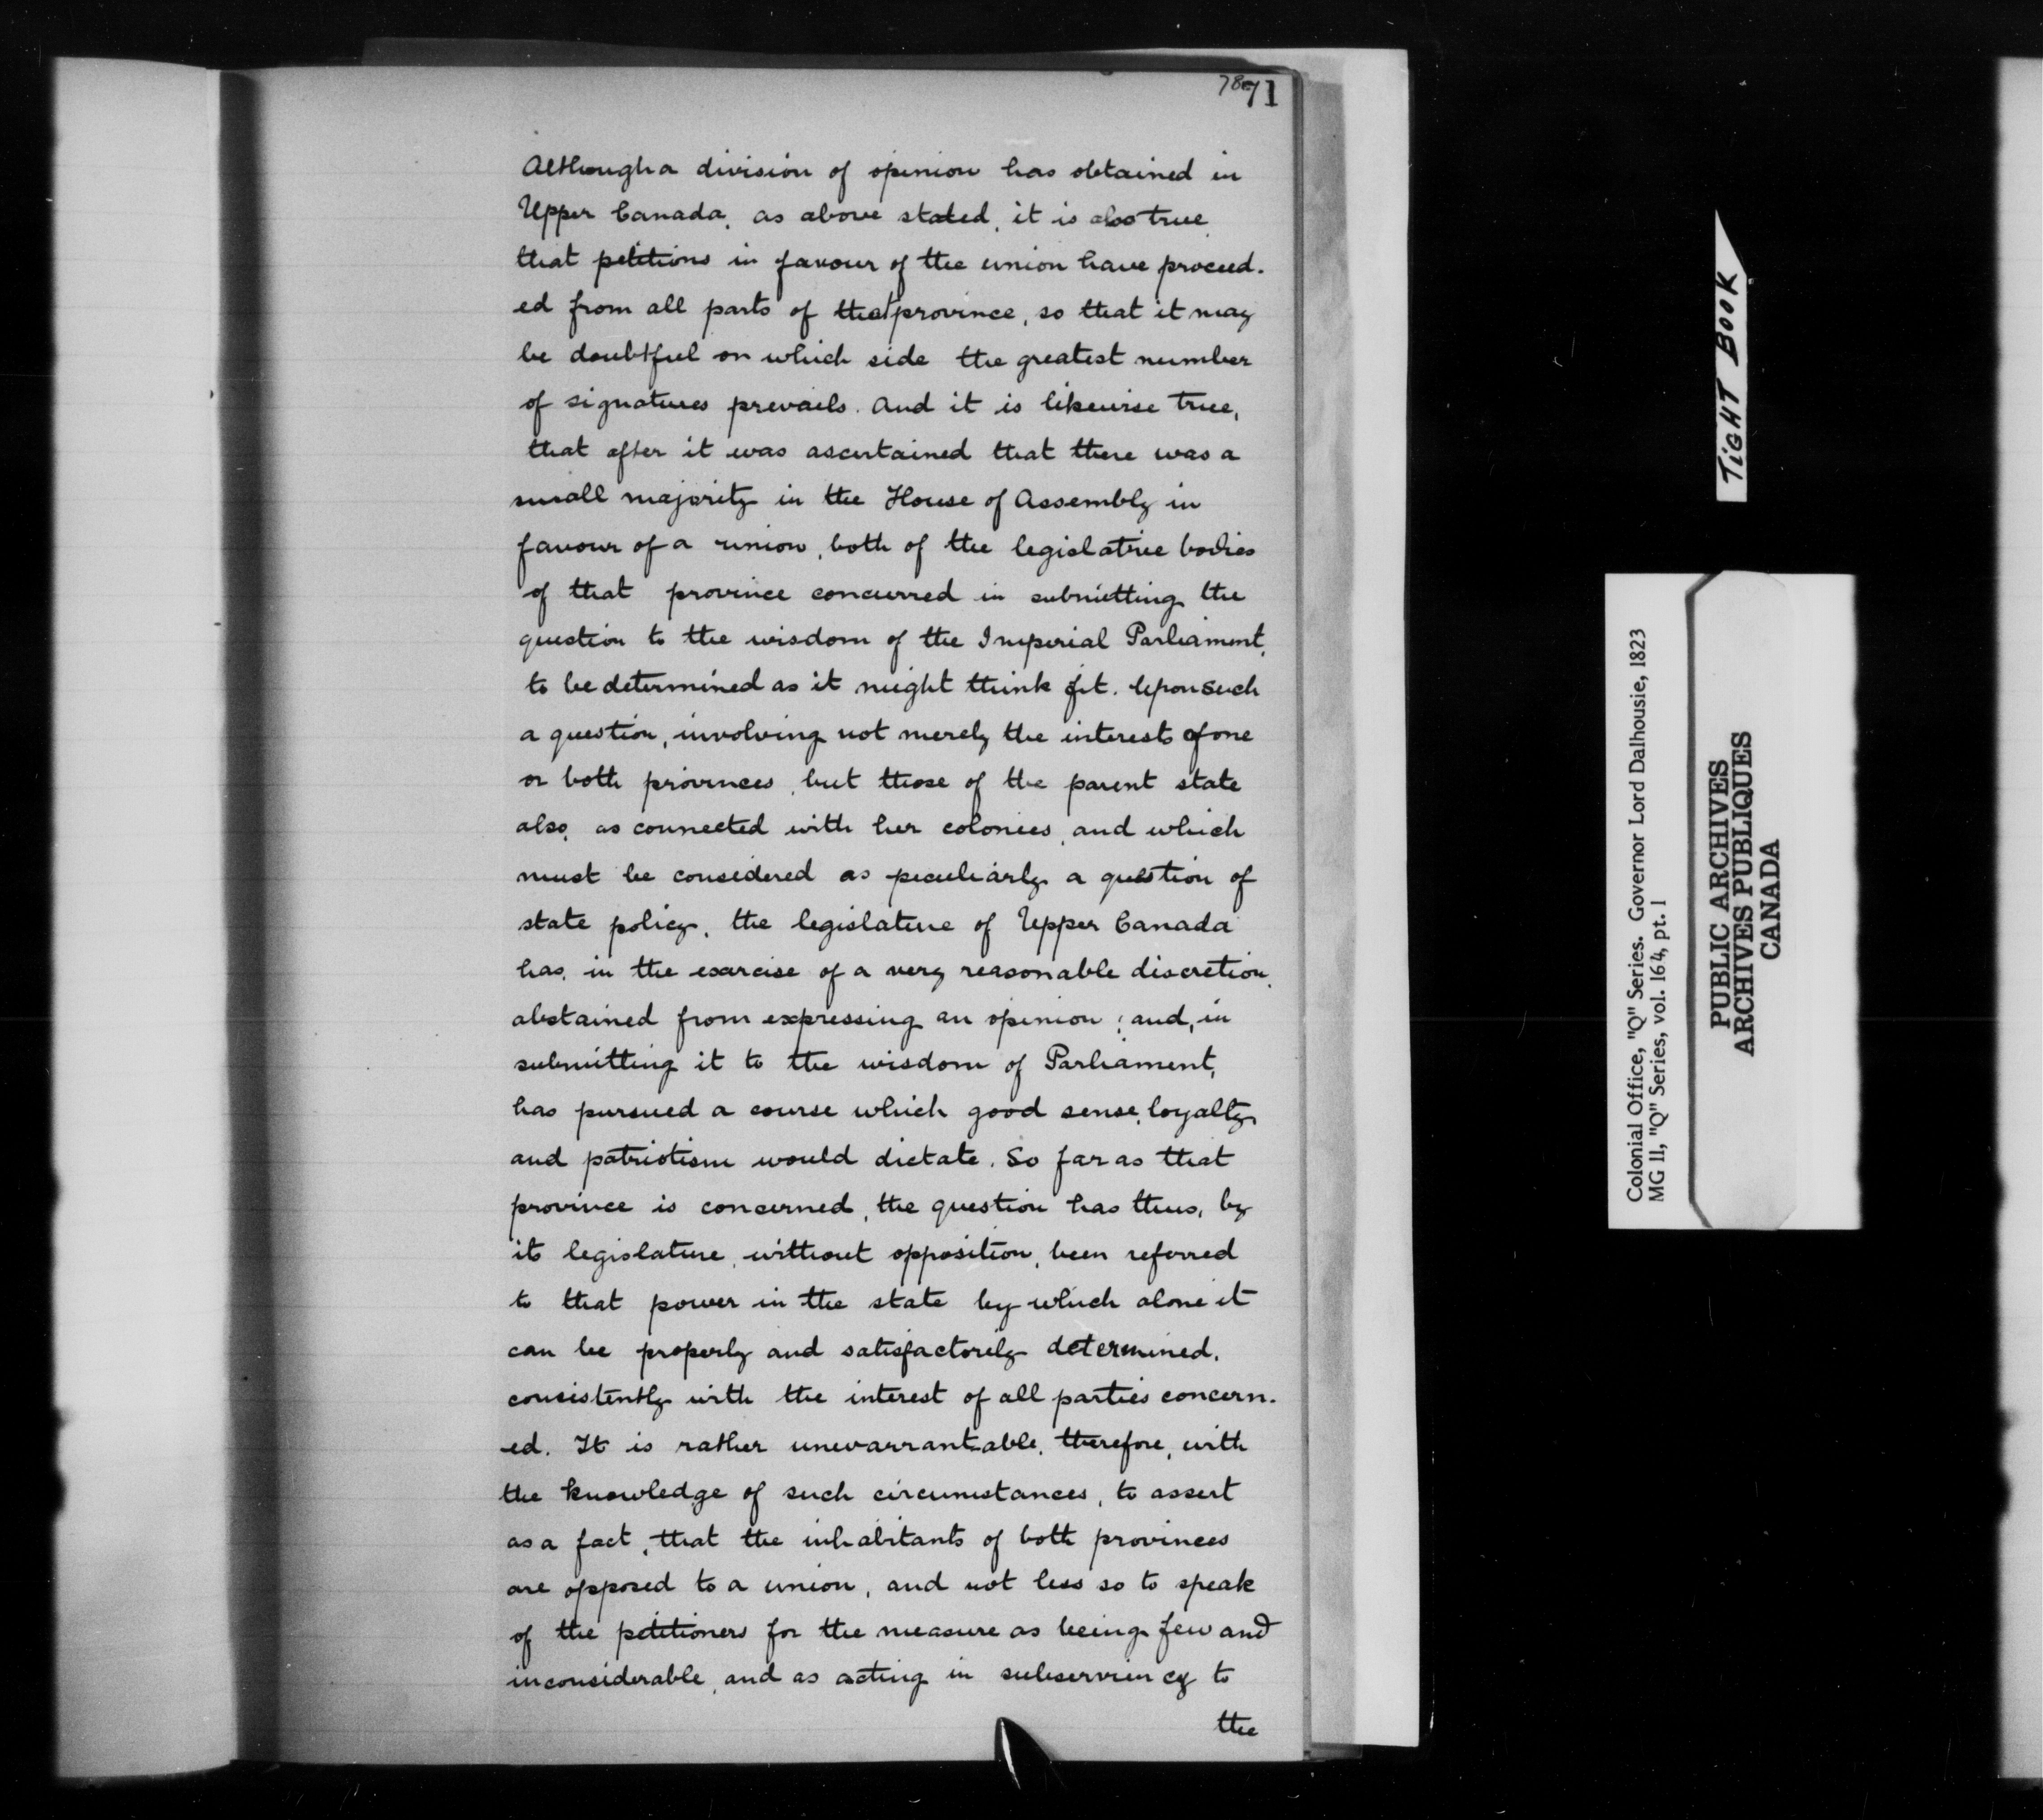 71
Although a division of opinion has obtained in
Upper Canada, as above stated, it is also true
that petitions in favour of the union have proceed-
ed from all parts of that province, so that it may
be doubtful on which side the greatest number
of signatures prevails. And it is likewise true,
that after it was ascertained that there was a
small majority in the House of Assembly in
favour of a union, both of the legislative bodies
of that province concurred in submitting the
question to the wisdom of the Imperial Parliament,
to be determined as it might think fit. Upon such
a question, involving not merely the interests of one
or both provinces, but those of the parent state
also, as connected with her colonies, and which
must be considered as peculiarly a question of
state policy, the legislature of Upper Canada
has, in the exercise of a very reasonable discretion,
abstained from expressing an opinion; and, in
submitting it to the wisdom of Parliament,
has pursued a course which good sense, loyalty
and patriotism would dictate. So far as that
province is concerned, the question has thus, by
its legislature, without opposition, been referred
to that power in the state by which alone it
can be properly and satisfactorily determined,
consistently with the interest of all parties concern-
ed. It is rather unwarrantable, therefore, with
the knowledge of such circumstances, to assert
as a fact, that the inhabitants of both provinces
are opposed to a union, and not less so to speak
of the petitioners for the measure as being few and
inconsiderable, and as acting in subserviency to
the
TIGHT BOOK
Colonial Office, "Q" Series. Governor Lord Dalhousie, 1823
MG 11, "Q" Series, vol. 164, pt. 1
PUBLIC ARCHIVES
ARCHIVES PUBLIQUES
CANADA